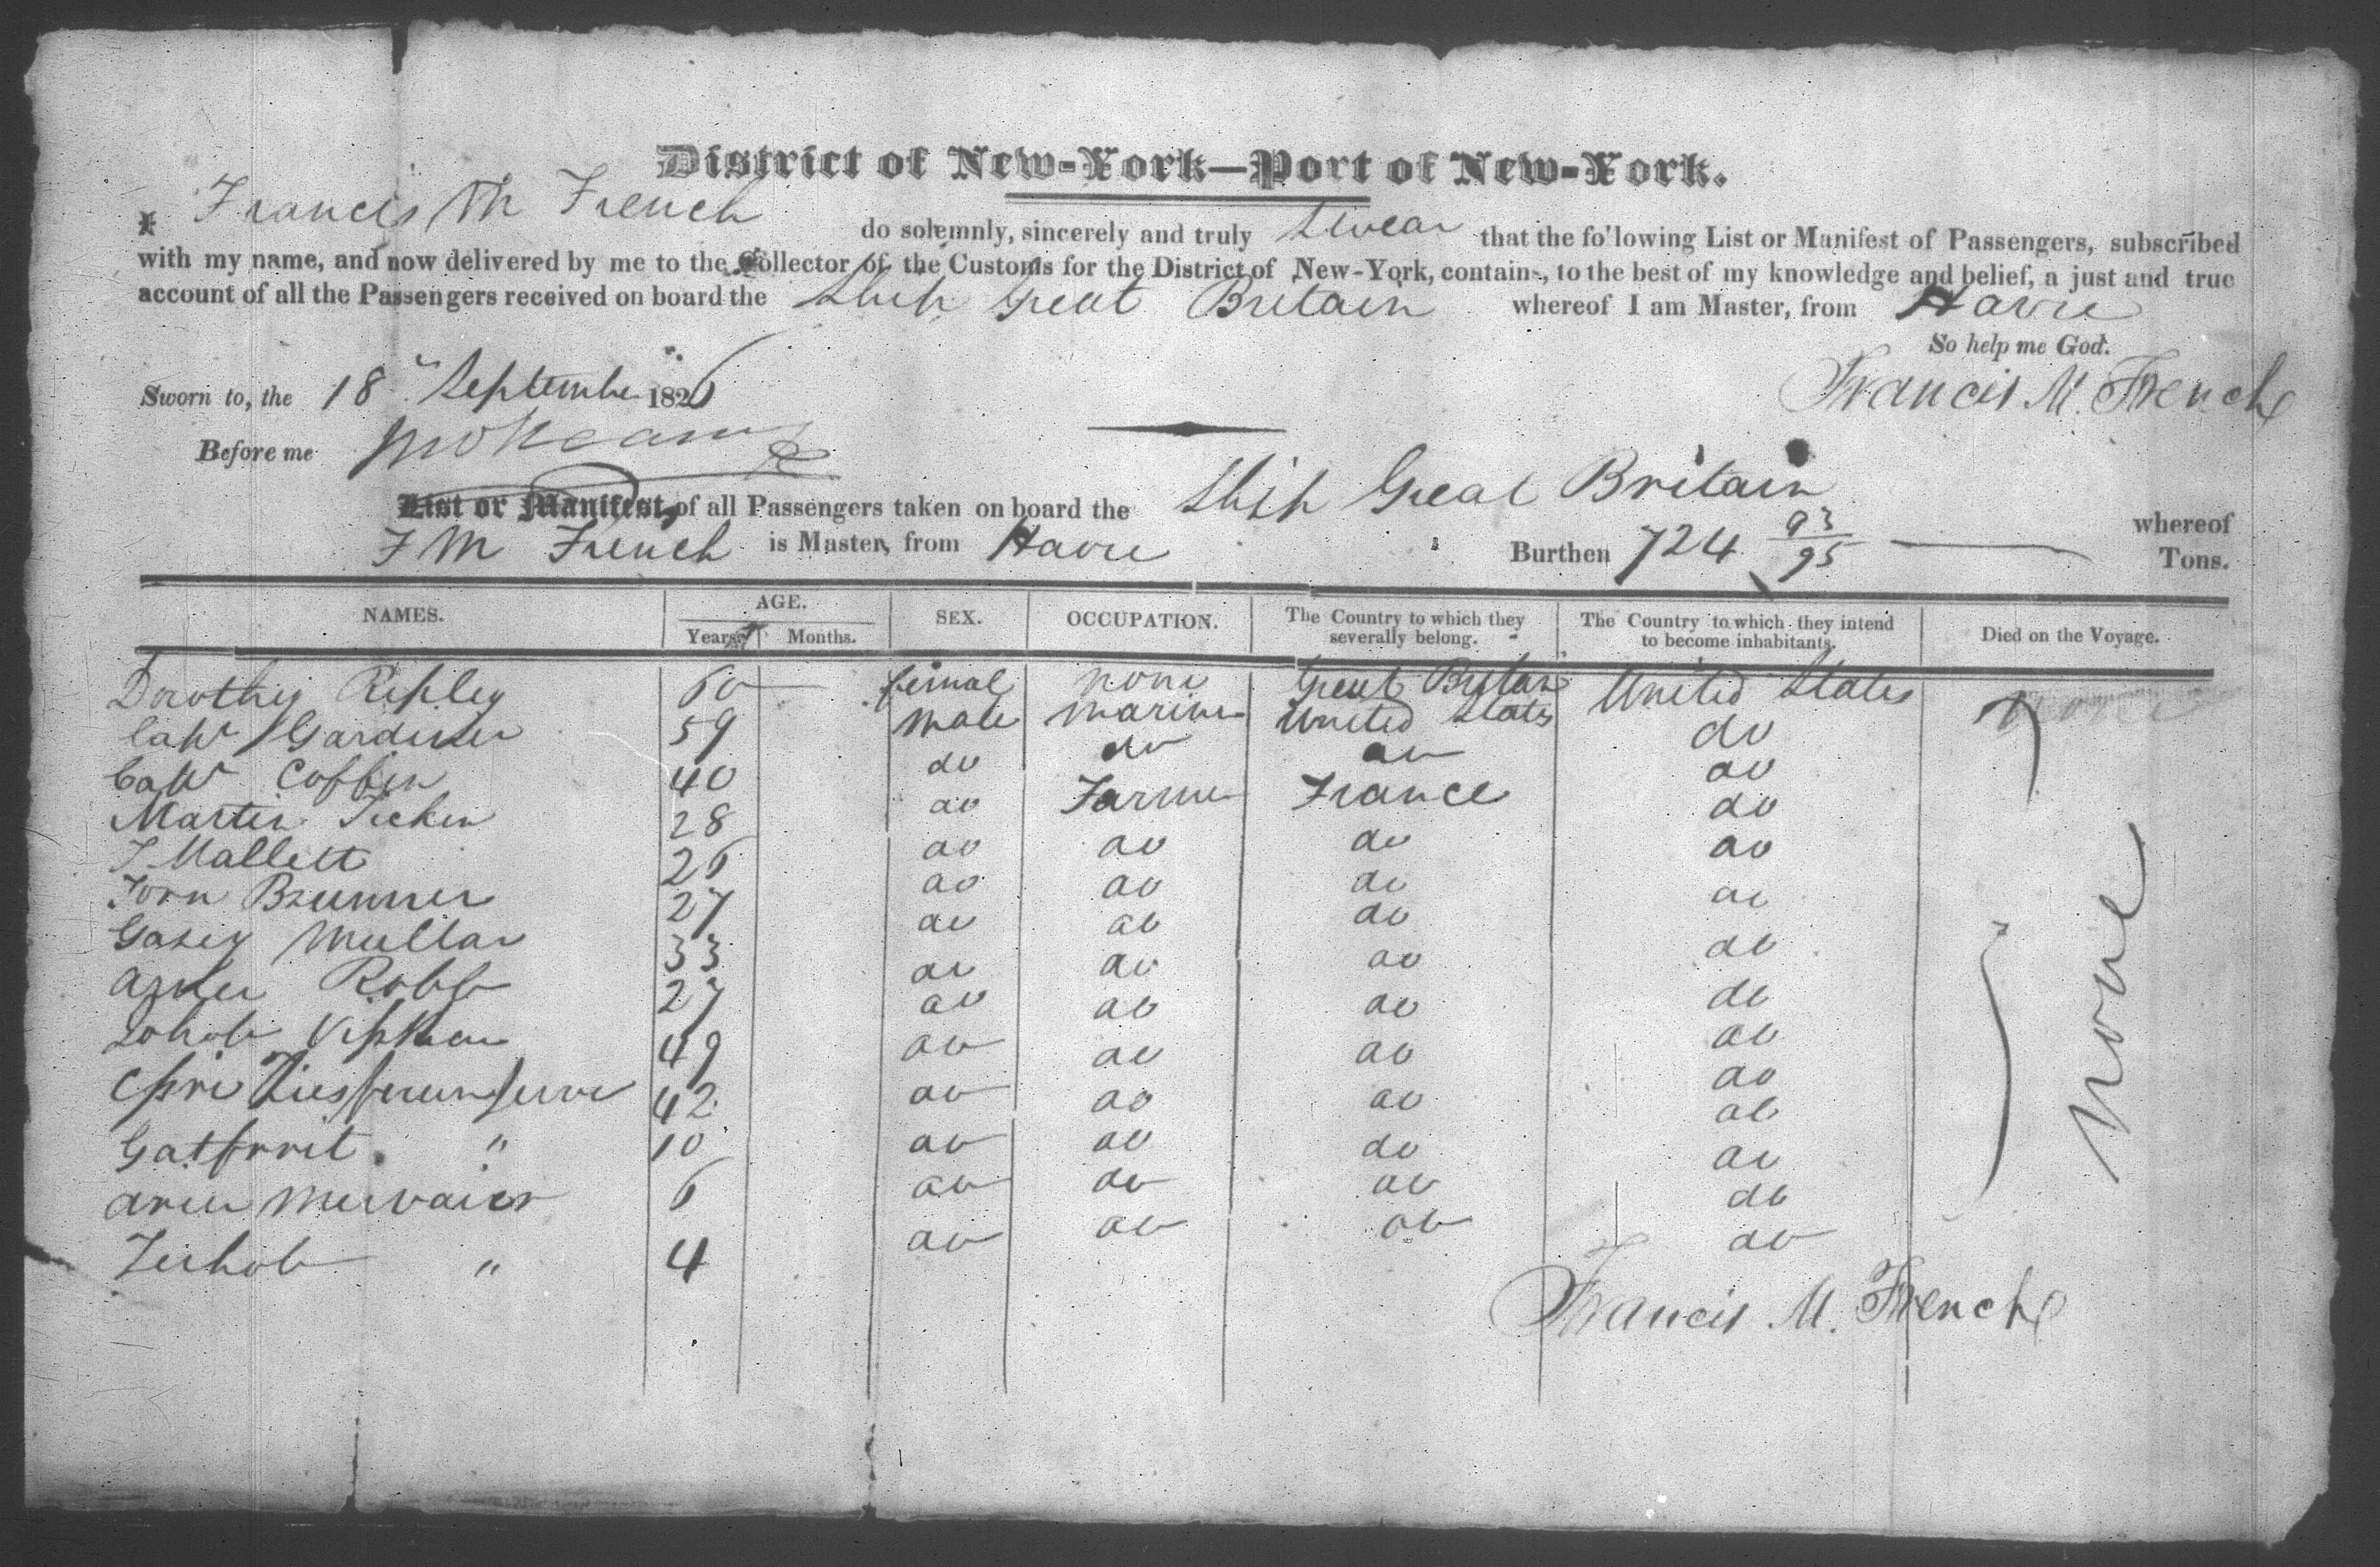 District of New-York—Port of New-York.
I Francis M French do solemnly, sincerely and truly Swear that the fo'lowing List or Manifest of Passengers, subscribed
with my name, and now delivered by me to the Collector of the Customs for the District of New-York, contains, to the best of my knowledge and belief, a just and true
account of all the Passengers received on board the Ship Great Britain whereof I am Master, from Havre
So help me God.
Sworn to, the 18 September 1826 Francis M. French
Before me
List or Manifest, of all Passengers taken on board the Ship Great Britain whereof
F M French is Master, from Havre Burthen 724 93/95 Tons.
NAMES. AGE. Years. Months. SEX. OCCUPATION. The Country to which they severally belong. The Country to which they intend to become inhabitants. Died on the Voyage.
Dorothy Ripley 60 femal none Great Britain United States
Capt Gardiner 59 male Mariner United States do
Capt Coffin 40 do do do do
Martin 28 do Farmer France do
J Mallett 26 do do do do
Brunner 27 do do do do
Mullar 33 do do do do
Robb 27 do do do do
49 do do do do
42 do do do do
10 do do do do
6 do do do do
4 do do do do
none
Francis M. French